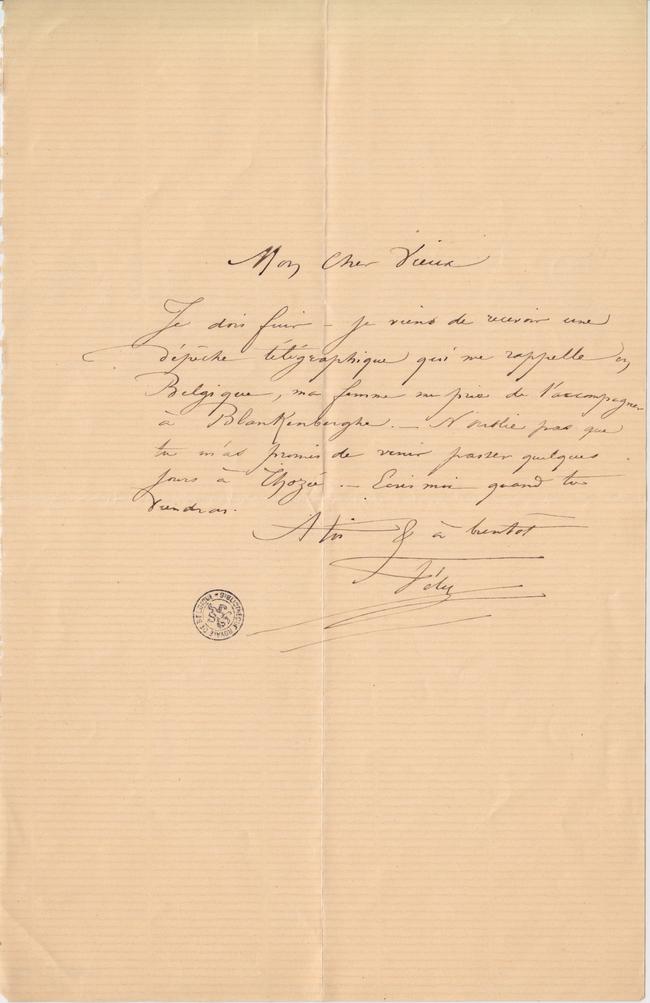 Mon Cher Vieux
Je dois fuir – je viens de recevoir une
dépêche télégraphique qui me rappelle en
Belgique, ma femme me prie de l'accompagner
à Blankenberghe. — N'oublie pas que
tu m'as promis de venir passer quelques
jours à Thozée. — Ecris moi quand tu
viendras.
A toi & à bientôt
Fély
BIBLIOTHÈQUE ROYALE DE BELGIQUE